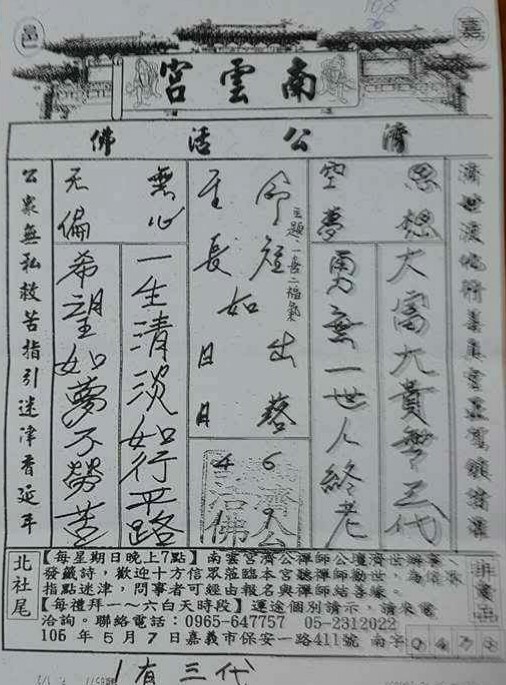 嘉
邑
南雲宮
濟公活佛
思想
空夢
大富大貴無三代
男無一世人終老
主題:一善二福氣
命短如出落
生長如日月
46
濟公
活佛
無心
无偏
一生清淡如行平路
希望如夢不勞苦
公衆無私救苦指引迷津香延年
北社尾
【每星期日晚上7點】南雲宮濟公禪師公壇濟世
發籤詩,歡迎十方信眾蒞臨本宮聽禪師勸世
指點迷津,問事者可經由報名與禪師結善緣。
【每禮拜一~六白天時段】運途個別請示,請來電
洽詢。聯絡電話:0965-647757 05-2312022
106年5月7日嘉義市保安一路411號 南字
有三代